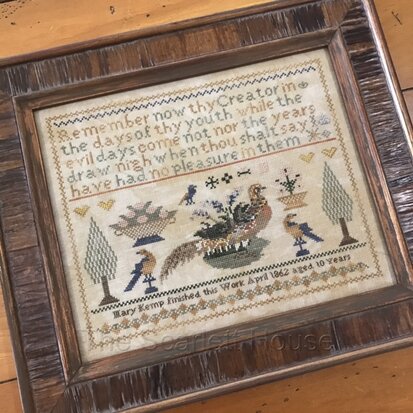 Remember now thy Creator in
the days of thy youth while the
evil days come not nor the years
draw nigh when thou shalt say
have had no pleasure in them
Mary Kemp finished this Work April 1862 aged 10 Years
The Scarlett House